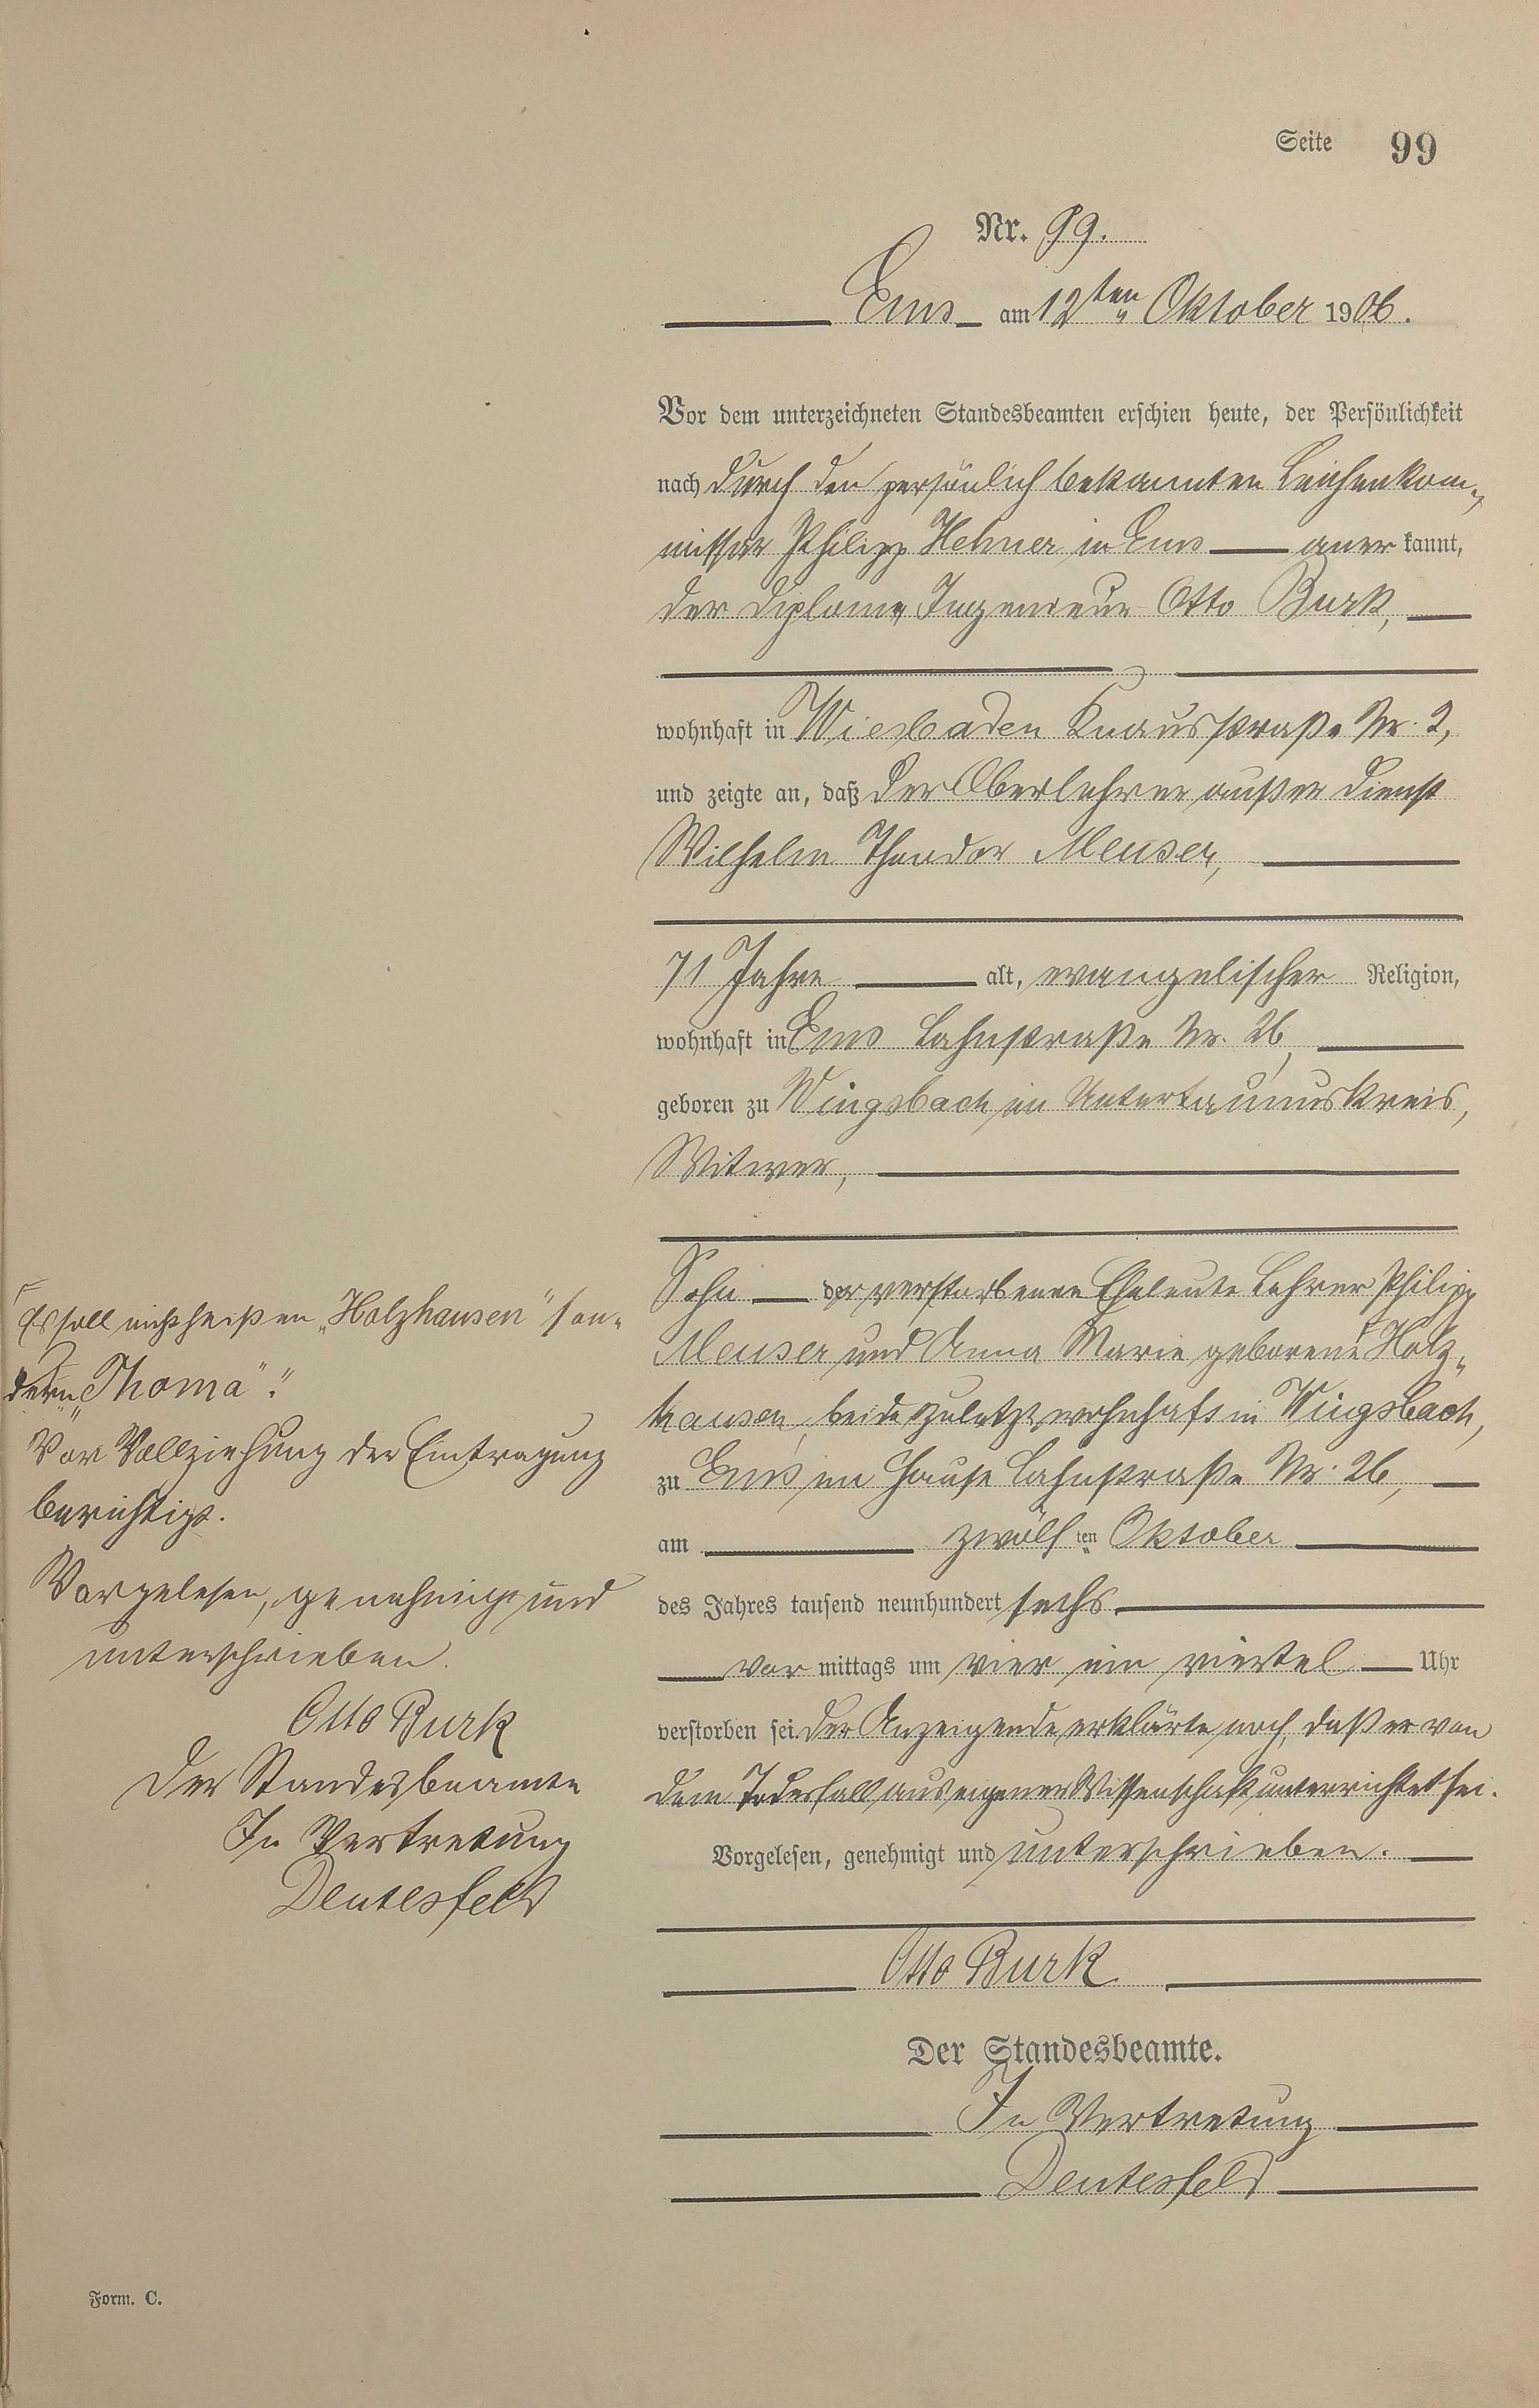 Seite 99
Nr. 99.
Ems am 12ten Oktober 1906.
Vor dem unterzeichneten Standesbeamten erschien heute, der Persönlichkeit
nach durch den persönlich bekannten Leichenkom-
missar Philipp Hehner in Ems anerkannt,
der Diplom-Ingenieur Otto Burk,
wohnhaft in Wiesbaden Knausstraße Nr. 2,
und zeigte an, daß der Oberlehrer außer Dienst
Wilhelm Theodor Meuser,
71 Jahre alt, evangelischer Religion,
wohnhaft in Ems Lahnstraße Nr. 26,
geboren zu Wingsbach im Untertaunuskreis,
Witwer,
Sohn der verstorbenen Eheleute Lehrer Philipp
Meuser und Anna Marie geborene Holz-
hausen, beide zuletzt wohnhaft in Wingsbach,
zu Ems im Hause Lahnstraße Nr. 26,
am zwölften Oktober
des Jahres tausend neunhundert sechs
vormittags um vier ein viertel Uhr
verstorben sei. Der Anzeigende erklärte noch, daß er von
dem Todesfall aus eigener Wissenschaft unterrichtet sei.
Vorgelesen, genehmigt und unterschrieben.
Otto Burk
Der Standesbeamte.
In Vertretung
Deutesfeld
Es soll nicht heißen „Holzhausen“ son-
dern „Thoma“.“
Vor Vollziehung der Eintragung
berichtigt.
Vorgelesen, genehmigt und
unterschrieben.
Otto Burk
Der Standesbeamte
In Vertretung
Deutesfeld
Form. C.